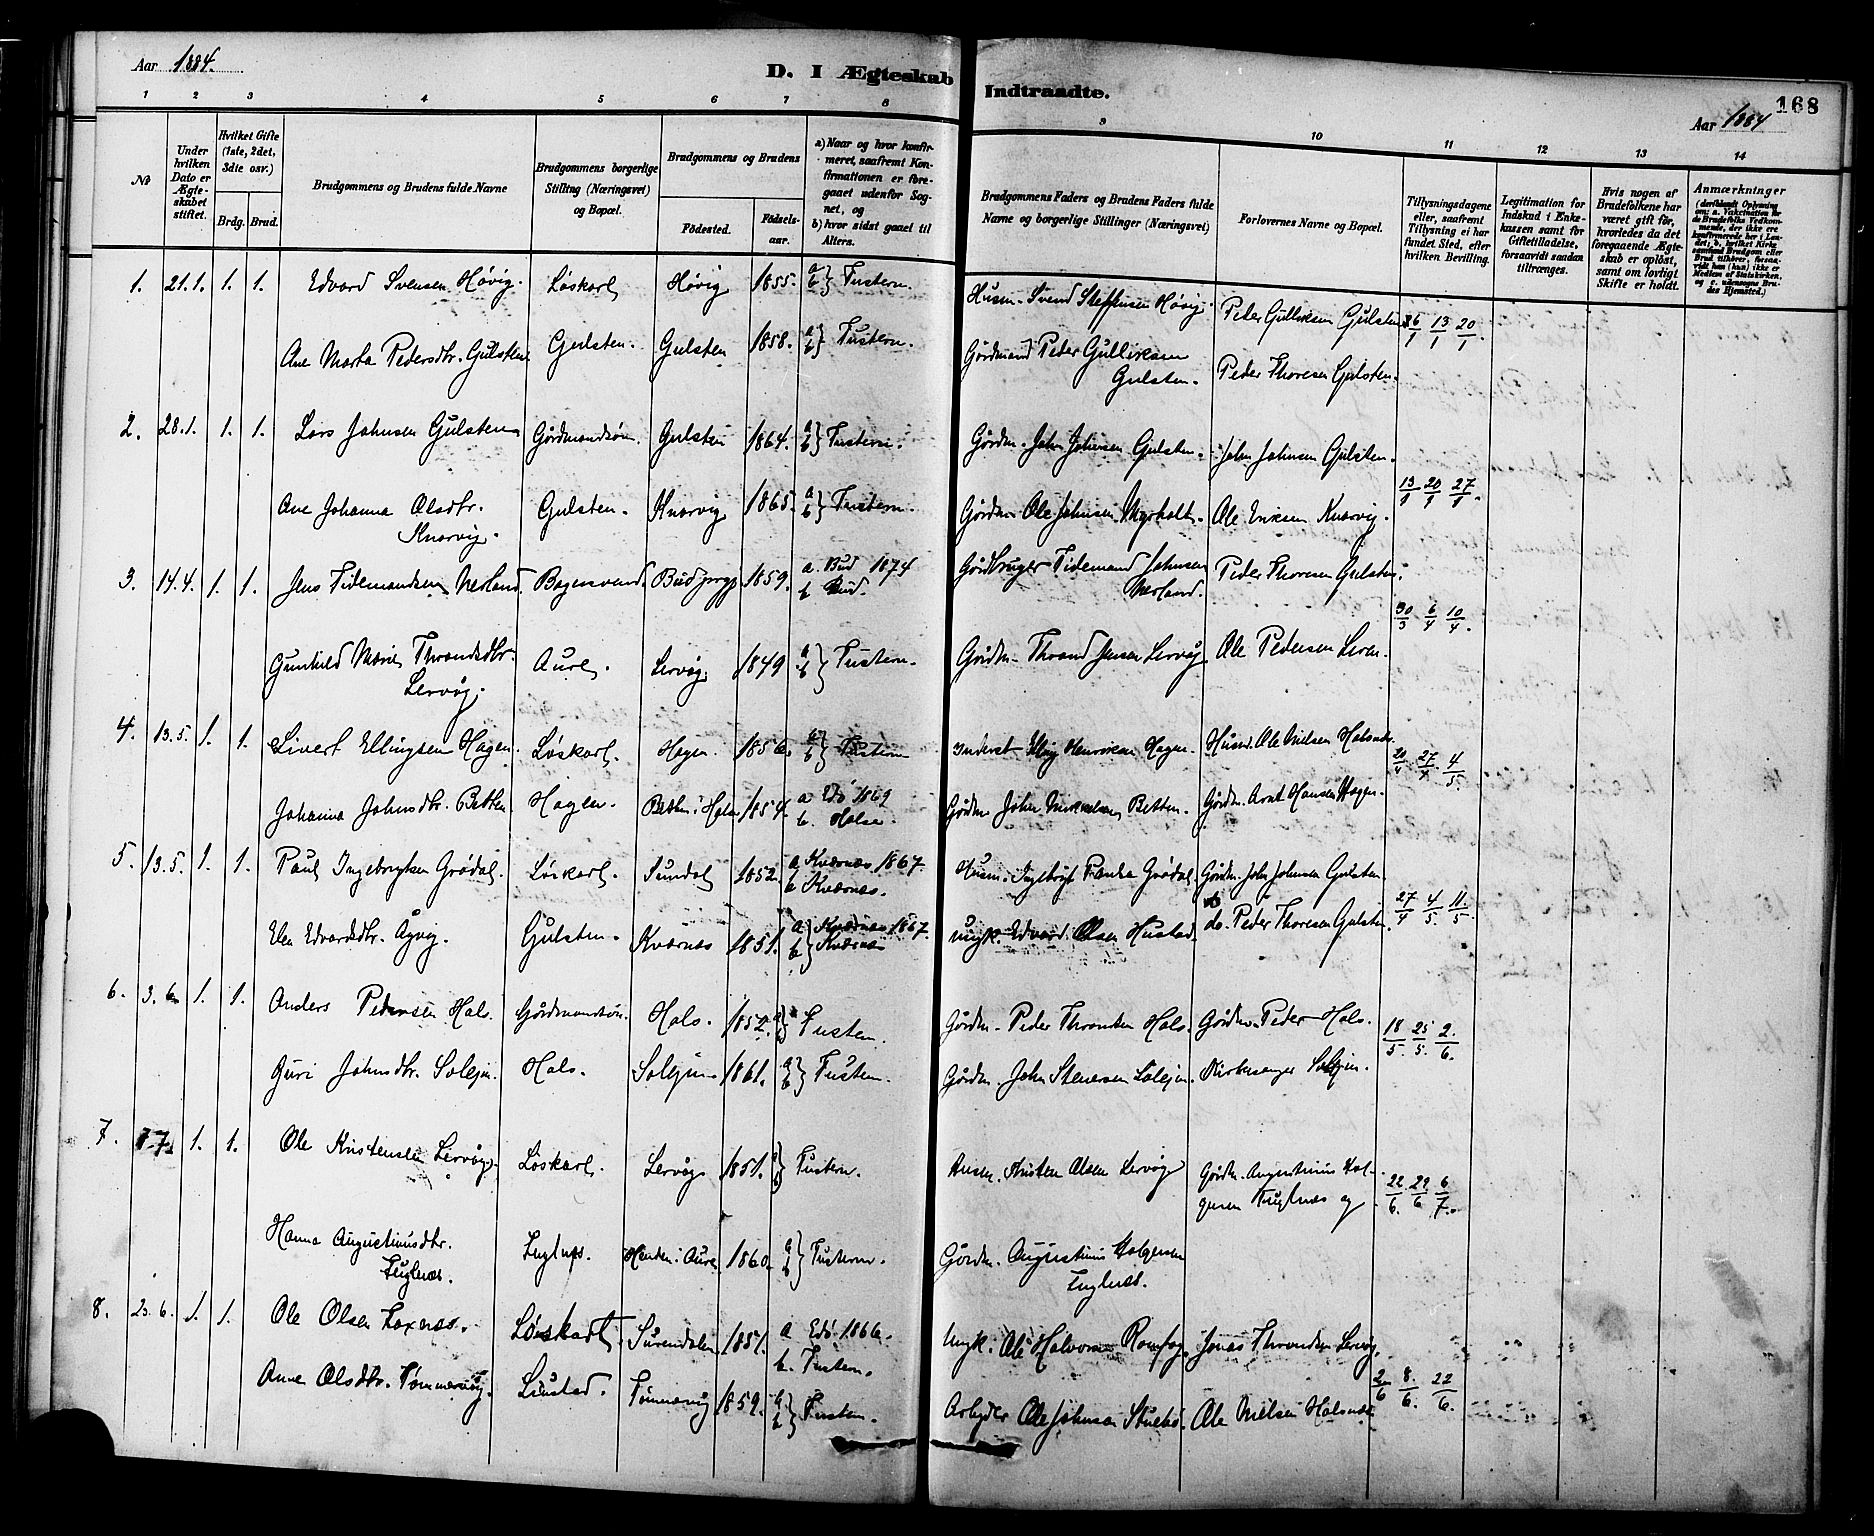 Aar 1884.
D. I Ægteskab Indtraadte.
168
Aar 1884
1 2 3 4 5 6 7 8 9 10 11 12 13 14
№
Under hvilken Dato er Ægteskabet stiftet.
Hvilket Gifte (1ste, 2det, 3die osv.)
Brdg. Brud.
Brudgommens og Brudens fulde Navne
Brudgommens borgerlige Stilling (Næringsvei) og Bopæl.
Brudgommens og Brudens
Födested. Födsels-aar.
a) Naar og hvor konfirmeret, saafremt Konfirmationen er foregaaet udenfor Sognet, og
b) hvor sidst gaaet til Alters.
Brudgommens Faders og Brudens Faders fulde Navne og borgerlige Stillinger (Næringsvei)
Forlovernes Navne og Bopæl.
Tillysningsdagene eller, saafremt Tillysning ei har fundet Sted, efter hvilken Bevilling.
Legitimation for Indskud i Enkekassen samt for Giftetilladelse, forsaavidt saadan tiltrænges.
Hvis nogen af Brudefolkene har været gift för, hvorledes da det foregaaende Ægteskab er oplöst, samt om lovligt Skifte er holdt.
Anmærkninger
1. 21.1. 1. 1. Edvard Svensen Høvig. Løskarl Høvig 1855. a b } Tustern. Husm. Svend Steffensen Høvig. Peder Gulliksen Gulsten 6/1 13/1 20/1.
Ane Marta Pedersdtr. Gulsten Gulsten. Gulsten 1858. a b } Tustern. Gårdmand Peder Gulliksen Gulsten. Peder Thoresen Gulsten.
2. 28.1. 1. 1. Lars Johnsen Gulsten Gårdmandsøn. Gulsten 1864. a b } Tustern. Gårdm. John Johnsen Gulsten. John Johnsen Gulsten.
13/1 20/1 27/1.
Ane Johanna Olsdtr. Knarvig. Gulsten. Knarvig 1865. a b } Tustern. Gårdm. Ole Johnsen Myrholt. Ole Eriksen Knarvig.
3. 14.4. 1. 1. Jens Tidemandsen Nerland. Bagersvend Bud 1859. a. Bud 1874 b Bud. Gårdbruger Tidemand Johnsen Nerland. Peder Thoresen Gulsten.
30/3 6/4 10/4.
Gunhild Marie Throndsdtr. Lervåg. Aure. Lervåg. 1849 a b } Tustern. Gårdm. Thrond Jensen Lervåg. Ole Pedersen
4. 13.5. 1. 1. Sivert Ellingsen Hagen. Løskarl. Hagen. 1856. a b } Tustern Inderst Elling Henriksen Hagen. Husm. Ole Nielsen Halsnæs.
20/4 27/4 4/5.
Johanna Johnsdtr. Betten. Hagen. Betten i Halse 1854. a Edø 1869 b. Halse. Gårdm. John Betten. Gårdm. Arnt Hansen Hagen.
5. 13.5. 1. 1. Paul Ingebrigtsen Grødal. Løskarl. Sundal 1852. a Kvernæs 1867 b Kvernæs. Husm. Ingebrigt Grødal. Gårdm. John Johnsen Gulsten
27/4 4/5 11/5.
Elen Edvardsdtr. Åsvig. Gulsten. Kvernæs 1851. a Kvernæs 1867. b Kvernæs Ungk. Edvard Olsen Hustad. do. Peder Thoresen Gulsten.
6. 3.6. 1. 1. Anders Pedersen Hals. Gårdmandsøn. Hals. 1852. a b } Tustern. Gårdm. Peder Hals. Gårdm. Peder Hals.
18/5. 25/5. 2./6.
Guri Johnsdtr. Solejm. Hals. Solejm. 1861. a b } Tustern. Gårdm. John Stenersen Solejm. Kirkesanger Solejm.
7. 7.7. 1. 1. Ole Kristensen Lervåg. Løskarl. Lervåg 1851. a b } Tustern. Husm. Kristen Olsen Lervåg Gårdm. Augustinus Holgersen Fuglnæs og
22/6. 29/6 6/7.
Hanna Augustinusdtr. Fuglnæs. Fuglnæs. i Aure 1860. a b } Tustern. Gårdm. Augustinus Holgersen Fuglnæs.
8. 23.6. 1. 1. Ole Olsen Laxnæs. Løskarl. Surendalen 1851. a Edø 1866. b. Tustern. Ungk. Ole Halvorsen Jonas Throndsen Lervåg.
2/6 8/6. 22/6.
Anne Olsdtr. Tømmervåg. Tømmervåg 1859. a b } Tustern. Arbejder Ole Johnsen Ole Nielsen Halsnæs